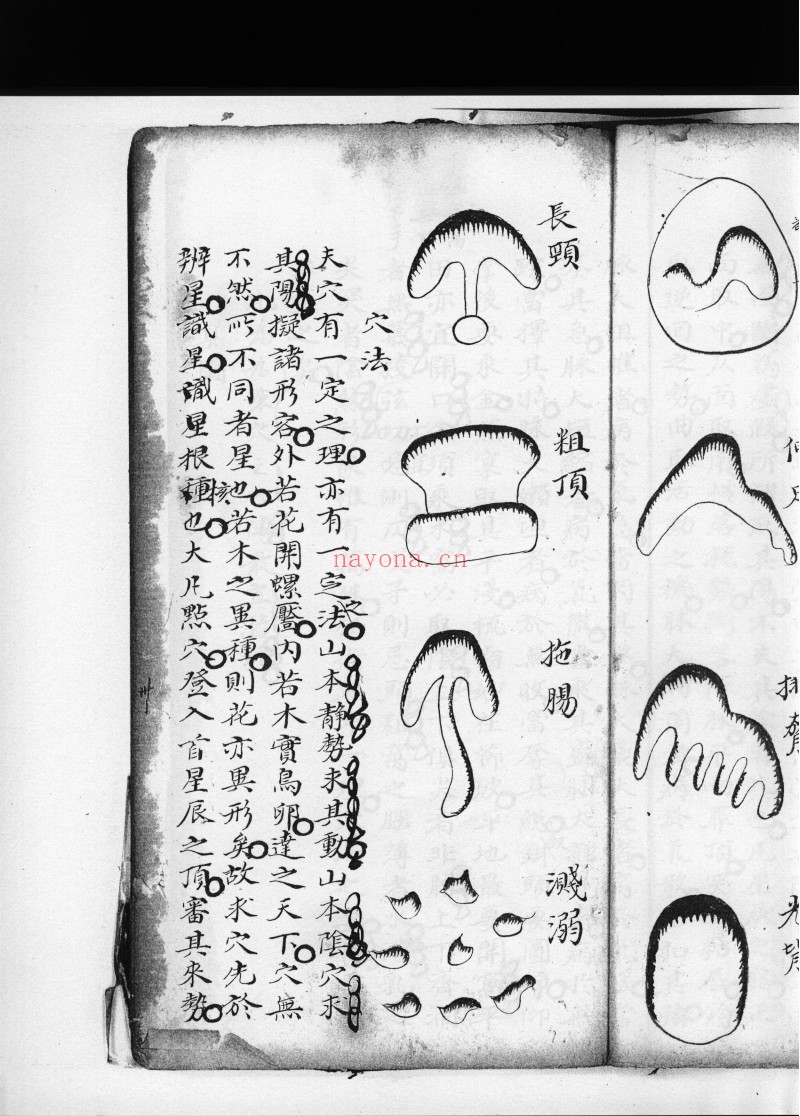 光
長頸
粗頂
拖腸
濺溺
穴法
夫穴有一定之理亦有一定之法山本静勢求其動山本陰穴求
其陽擬諸形容外若花開螺靨内若木實鳥卵達之天下穴無
不然所不同者星也若木之異種則花亦異形矣故求穴先於
辨星識星識星根種核也大凡點穴登入首星辰之頂審其來勢
卅
nayona.cn